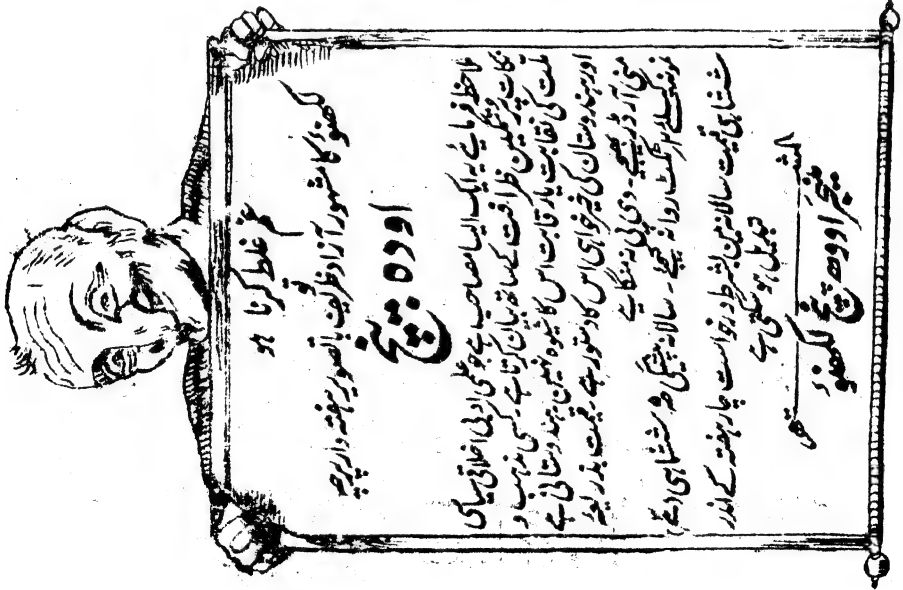 غم غلط کرنا ہو
تو
لکھنؤ کا مشہور آزاد ظریف باتصویر ہفتہ وار پرچہ
اودھ پنچ
ملاحظہ فرمائیے یہ ایک ایسا مصاحب ہے جو علمی ادبی اخلاقی سیاسی
نکات پر تمکین ظرافت کے ساتھ بیان کرتا ہے۔ کسی مذہب و
ملت کی نقابت یا رقابت اس کا شیوہ نہیں ہندوستانی ہے
اور ہندوستان کی خیرخواہی اس کا دستور ہے۔ قیمت بذریعہ
منی آرڈر بھیجیے۔ وی پی نہ منگایے
نمونہ کیلئے ۲ر ٹکٹ روانہ کیجئے۔ سالانہ پیشگی ششماہی
ششماہی قیمت سالانہ میں بشرط درخواست چار ہفتہ کے اندر
تبدیل ہو سکتی ہے
المشتہر
منیجر اودھ پنچ لکھنؤ